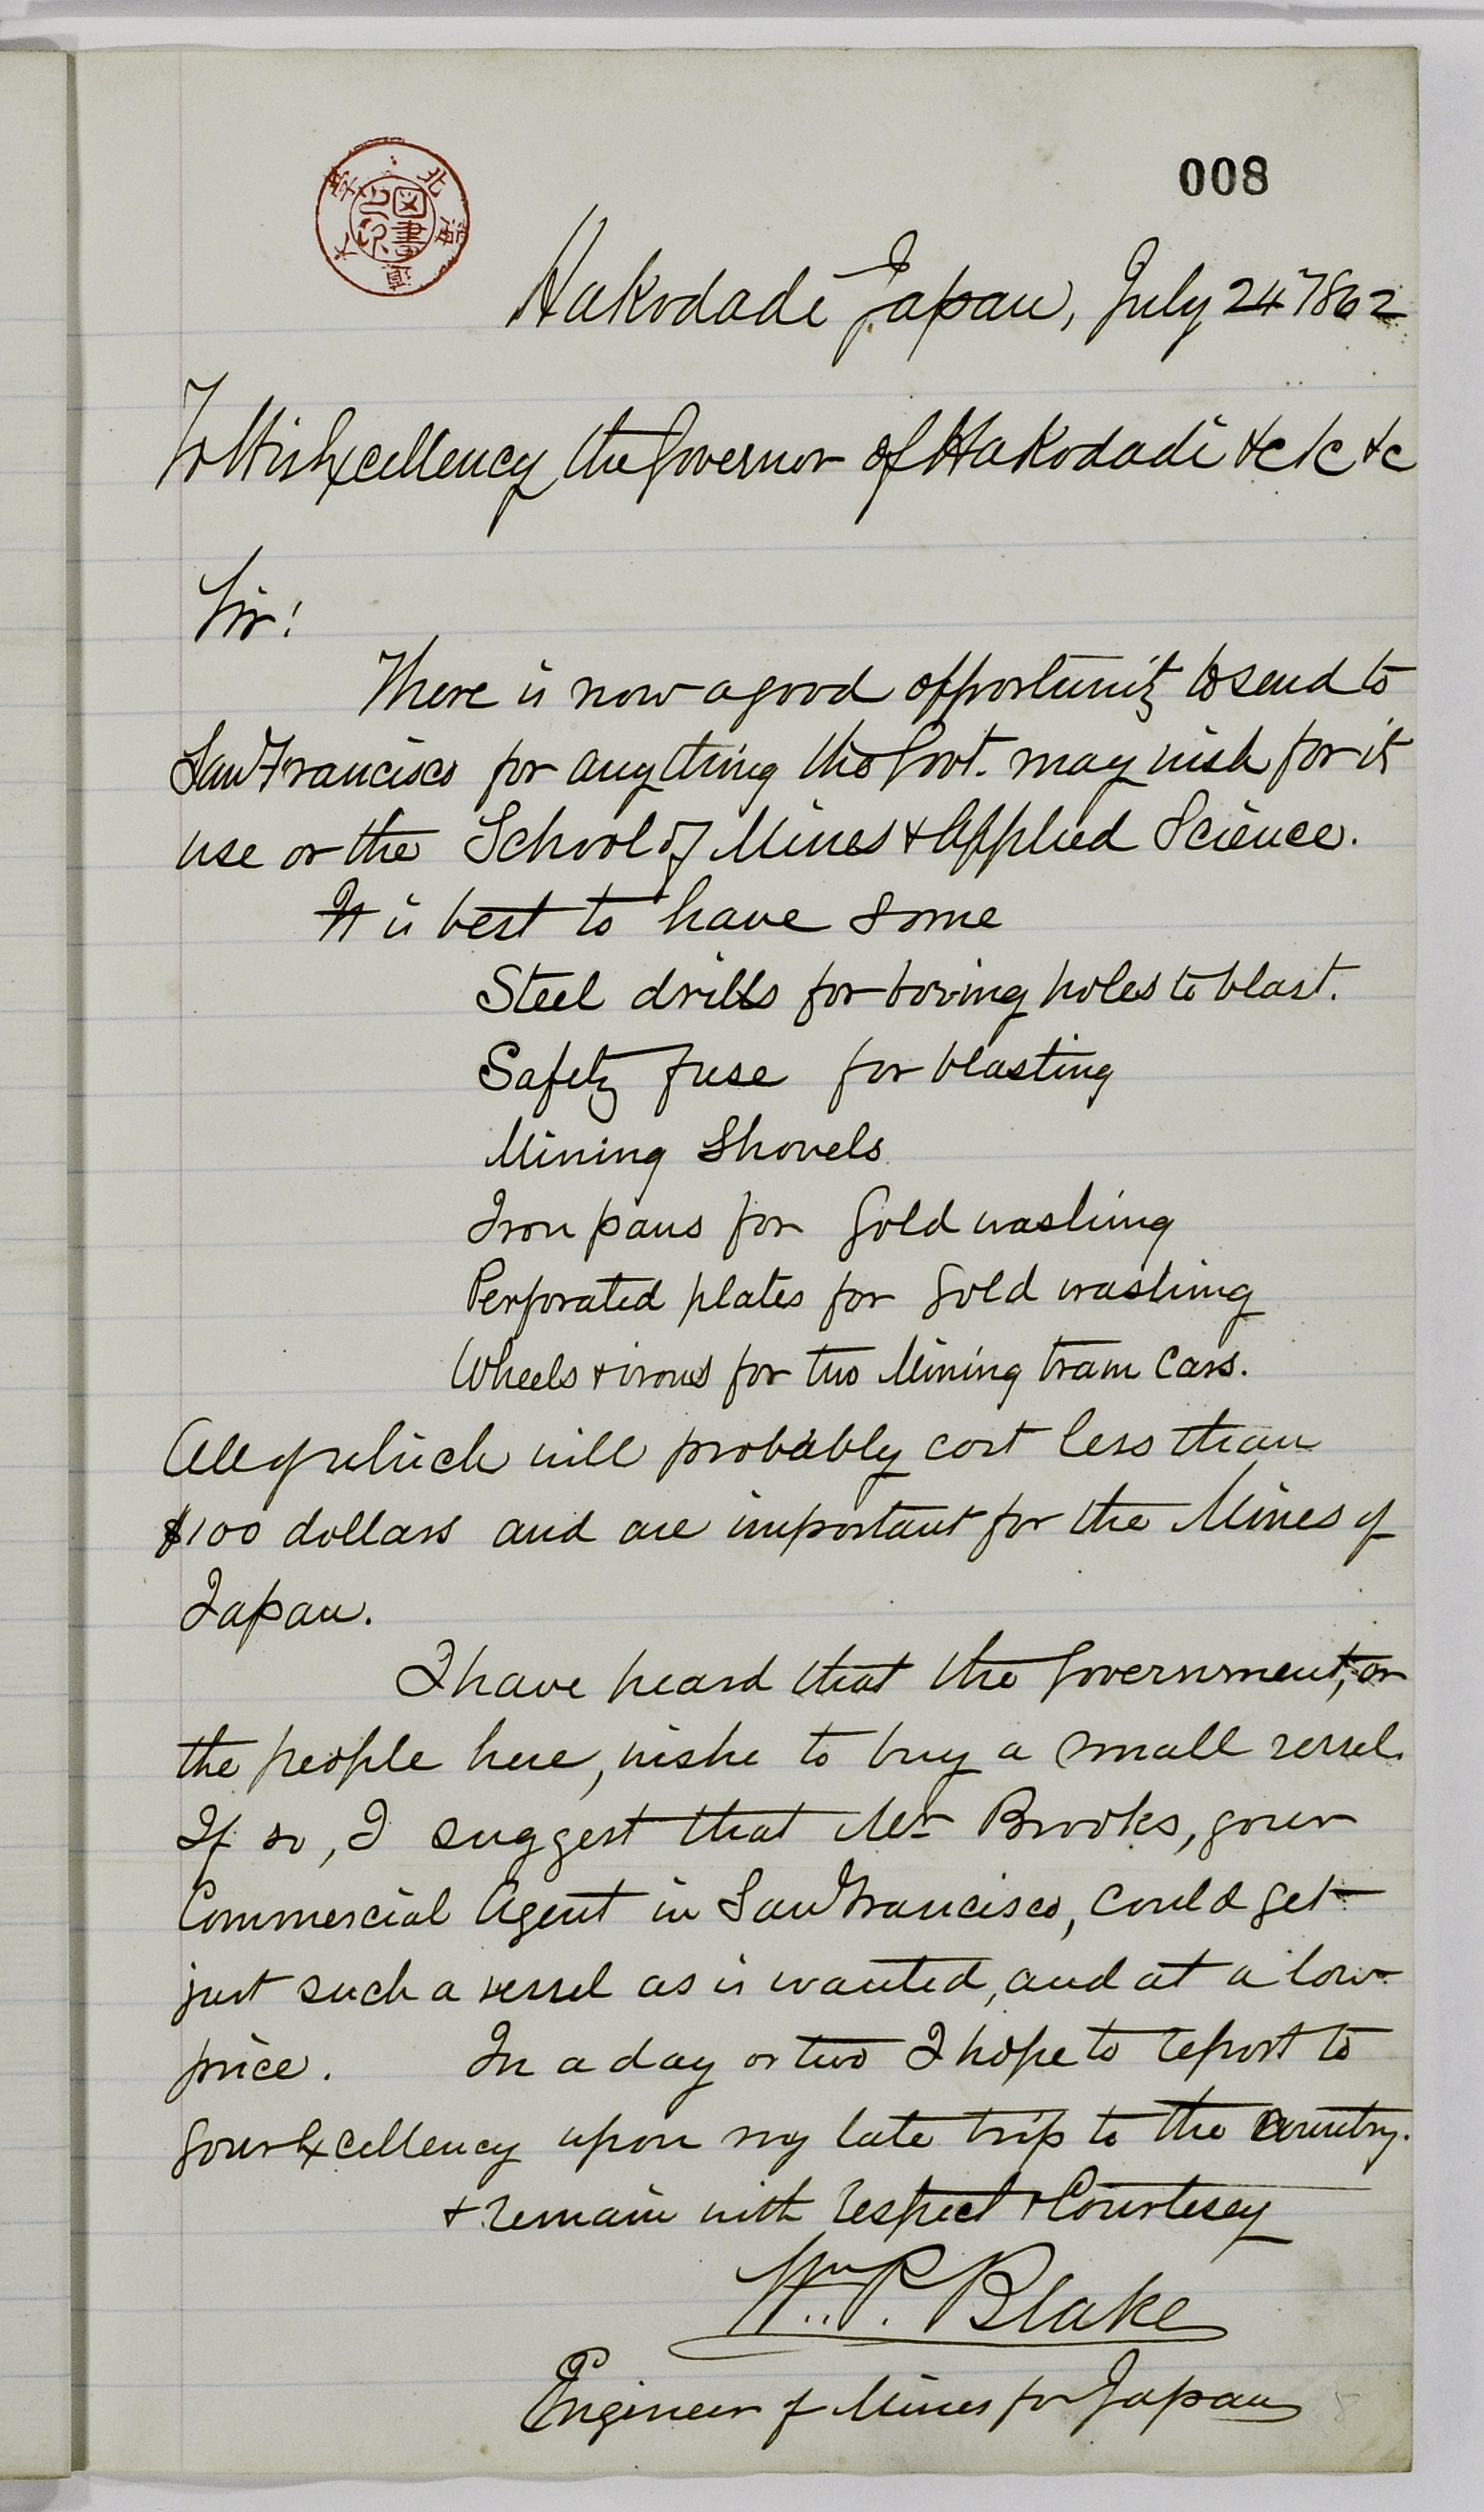 北海道大学
図書之印
008
Hakodadi Japan, July 24 1862
To His Excellency the Governor of Hakodadi &c &c &c
Sir!
There is now a good opportunity to send to
San Francisco for anything the Govt. may wish for it
use or the School of Mines & Applied Science.
It is best to have some
Steel drills for boring holes to blast.
Safety fuse for blasting
Mining Shovels
Iron pans for Gold washing
Perforated plates for Gold washing
Wheels & irons for two Mining tram Cars.
All of which will probably cost less than
$100 dollars and are important for the Mines of
Japan.
I have heard that the Government, or
the people here, wishe to buy a small vessel.
If so, I suggest that Mr Brooks, your
Commercial Agent in San Francisco, could get
just such a vessel as is wanted, and at a low
price. In a day or two I hope to report to
your Excellency upon my late trip to the Country.
& remain with respect & Courtesey
Wm. P. Blake
Engineer of Mines for Japan